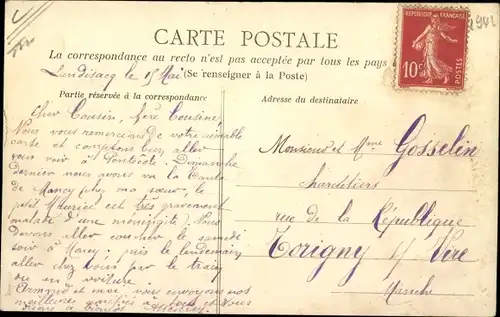 CARTE POSTALE
La correspondance au recto n'est pas acceptée par tous les pays
(Se renseigner à la Poste)
le 15 Mai
Partie réservée à la correspondance
Cher Cousin, chère Cousine
Nous vous remercions de votre aimable
carte et comptons bien aller
vous voir à Pentecôte. Dimanche
dernier nous avons vu la Tante
de chez ma sœur, le
petit Maurice est très gravement
malade d'une méningite) Nous
devons aller coucher le samedi
soir à puis le lendemain
aller chez vous par le train
ou en voiture.
Armand et moi vous envoyons nos
meilleures à tous et vous
RÉPUBLIQUE FRANÇAISE
10c
POSTES
Adresse du destinataire
Monsieur et Mme Gosselin
rue de la République
Torigny s/ Vire
Manche